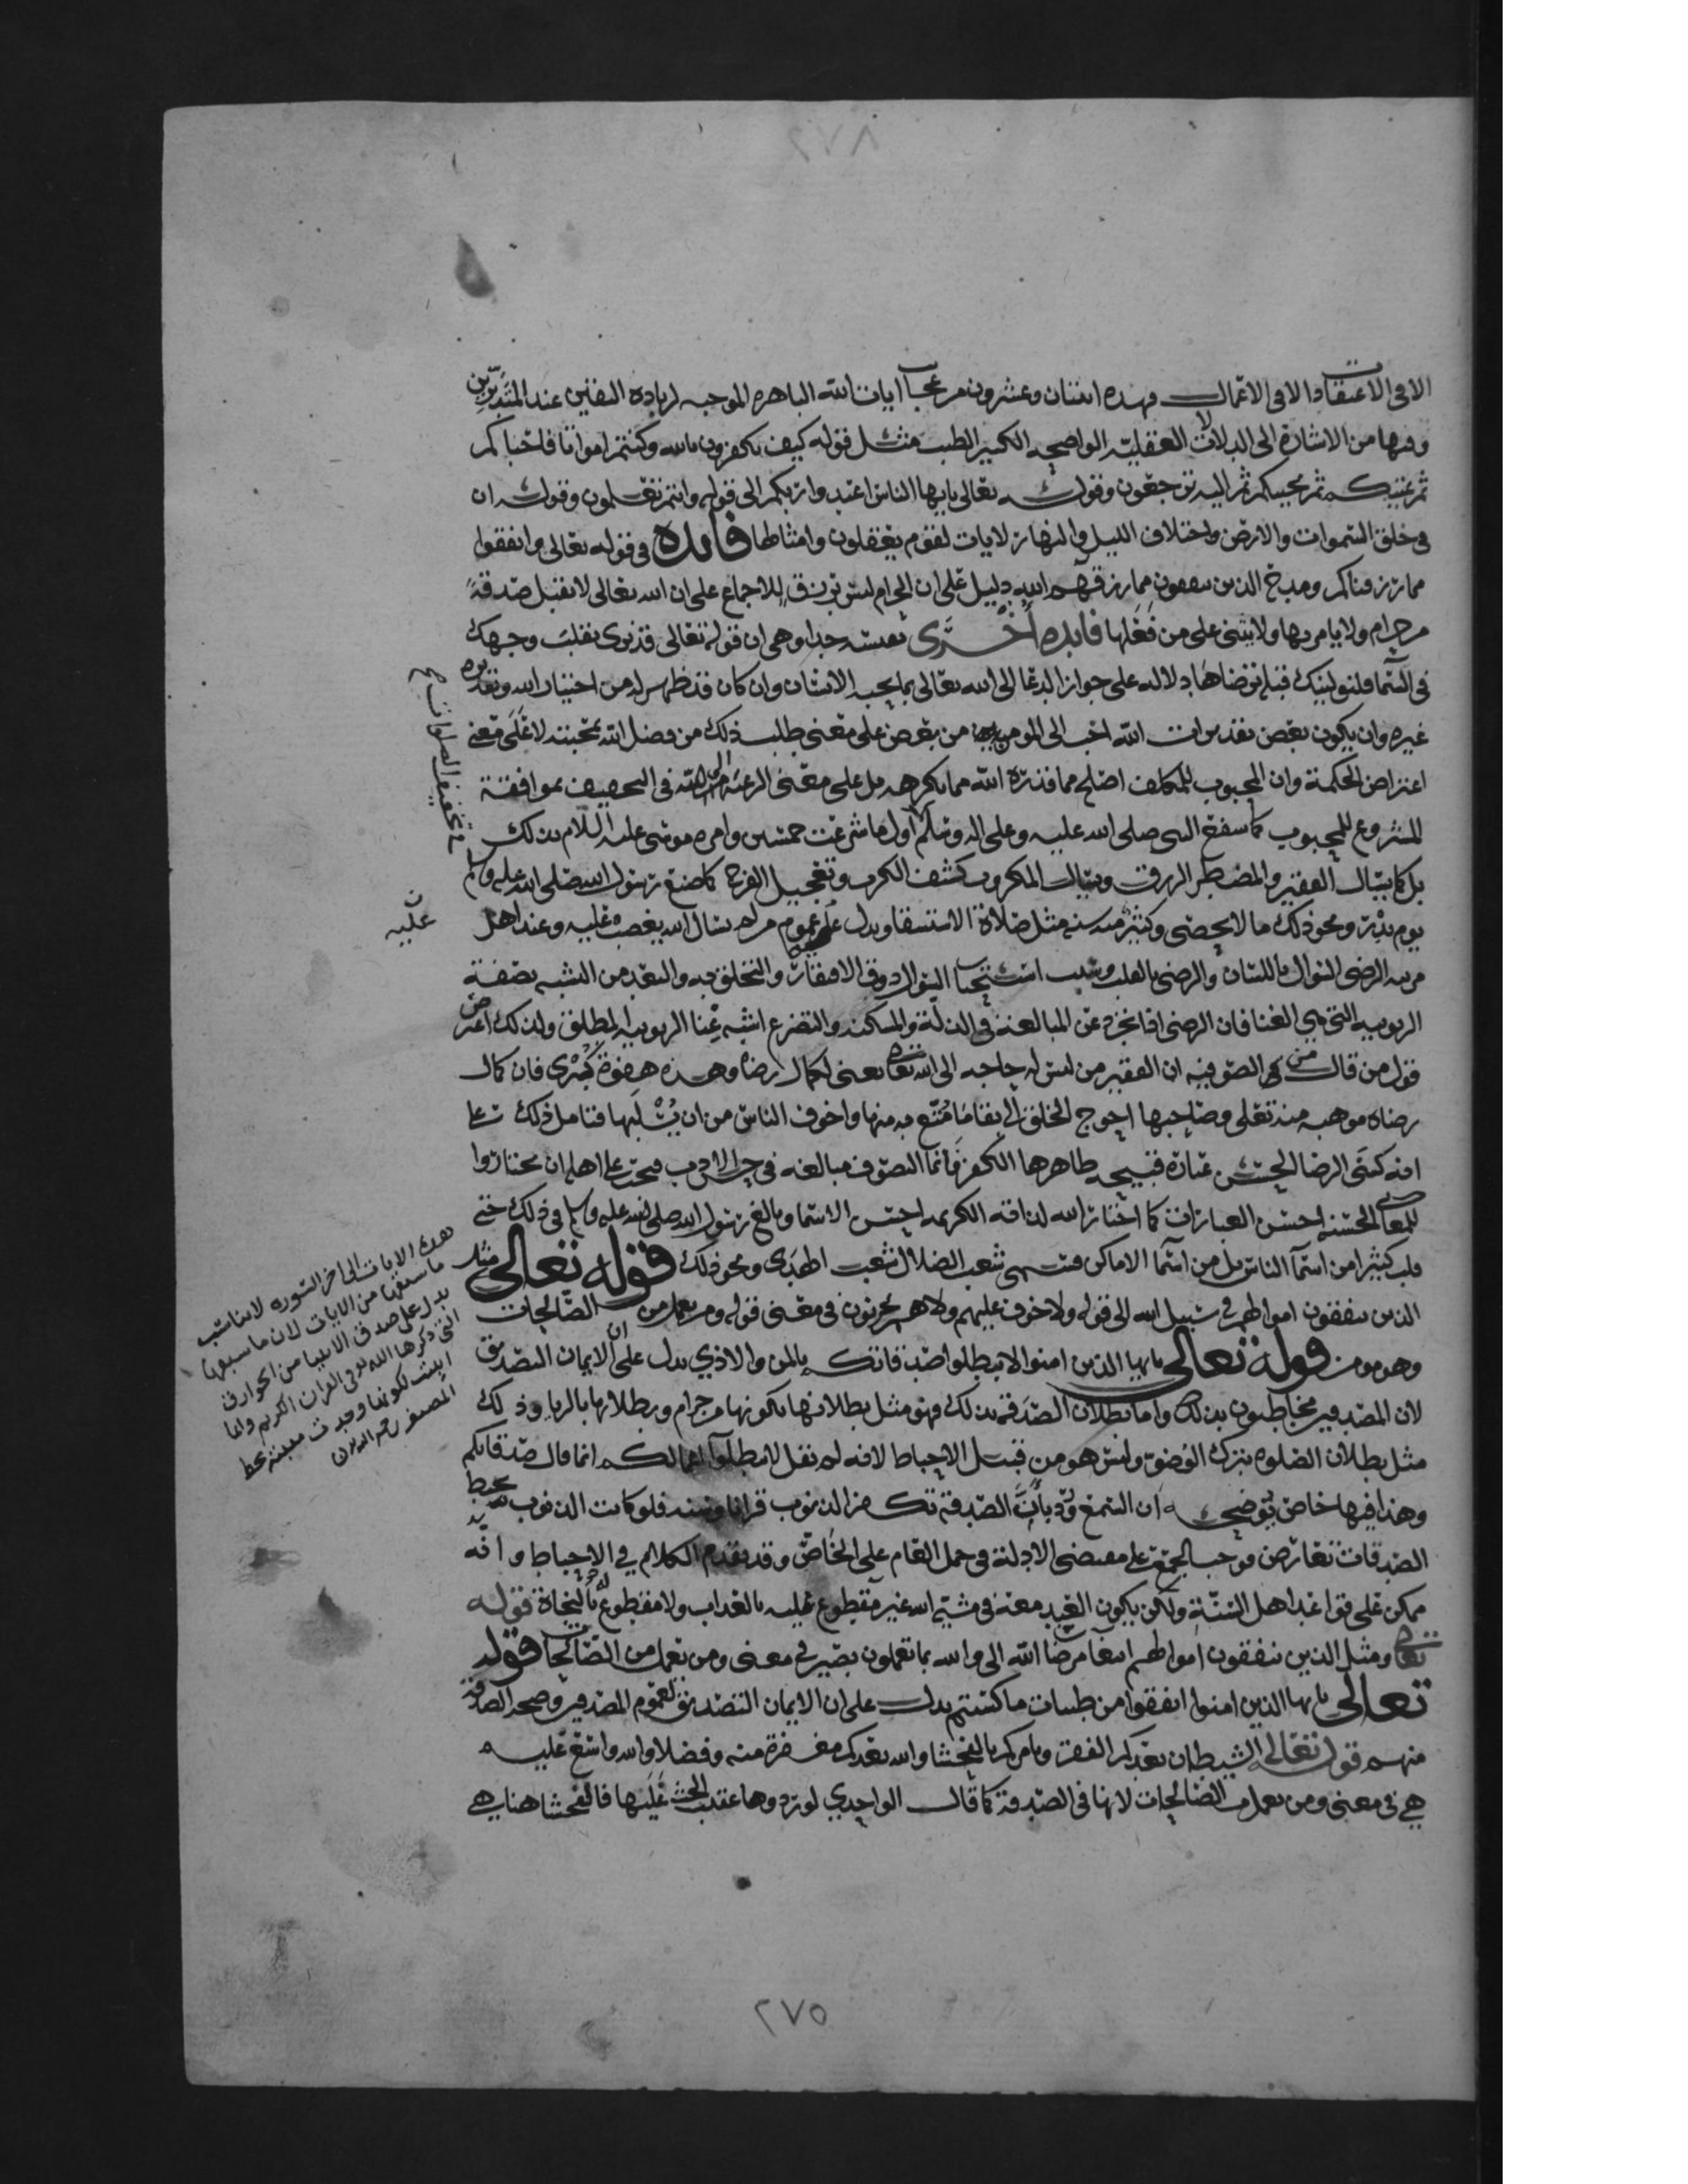 الا في الاعتقاد الا في الاعمال فهذه اثنتان وعشرون من عجايب ايات الله الباهره الموجبه لزيادة اليقين عند المتدبرين
وفيها من الاشارة الى الدلالات العقلية الواضحه الكثير الطيب مثل قوله كيف تكفرون بالله وكنتم امواتا فاحياكم
ثم يميتكم ثم يحييكم ثم اليه ترجعون وقوله تعالى يايها الناس اعبدوا ربكم الى قوله وانتم تعلمون وقوله ان
في خلق السموات والارض واختلاف الليل والنهار لايات لقوم يعقلون وامثالها فايده في قوله تعالى وانفقوا
مما رزقناكم ومدح الذين ينفقون مما رزقهم الله دليل على ان الحرام ليس برزق للاجماع على ان الله تعالى لا يقبل صدقة
من حرام ولا يامر بها ولا يثني على من فعلها فايده اخرى نفيسه جدا وهي ان قوله تعالى قد نرى تقلب وجهك
في السما فلنولينك قبلة ترضاها دلالة على جواز الدعا الى الله تعالى بما يحبه الانسان وان كان قد ظهر له من اختيار الله وتقديره
غيره وان يكون بعض تقديرات الله احب الى المومن من بعض على معنى طلب ذلك من فضل الله بمحبته لا على معنى
اعتراض الحكمة وان المحبوب للمكلف اصلح مما قدره الله مما يكرهه بل على معنى الرغبه الى الله في التخفيف بموافقة
المشروع للمحبوب كما شفع النبي صلى الله عليه وعلى اله وسلم اول ما شرعت خمسين وامره موسى عليه السلام بذلك
بل كما يسال الفقير والمضطر الرزق ويسال المكروب كشف الكرب وتعجيل الفرج كما صنع رسول الله صلى الله عليه وسلم
يوم بدر ونحو ذلك ما لا يحصى وكثير منه سنه مثل صلاة الاستسقا ويدل عليه عموم من لم يسال الله يغضب عليه وعند اهل
الرضى السوال باللسان والرضى بالقلب وسبب استحباب السوال ذوق الافتقار والتخلق به والبعد من التشبه بصفة
الربوبيه التي هي الغنا فان الرضى اذا تجرد عن المبالغة في الذلة والمسكنه والتضرع اشبه غنا الربوبيه المطلق ولذلك اعترض
قول من قال من الصوفيه ان الفقير من ليس له حاجه الى الله تعالى يعني لكمال رضاه وهذه هفوة كبرى فان كمال
رضاه موهبه منه تعالى وصاحبها احوج الخلق الى بقا ما متع به منها واخوف الناس من ان يسلبها فتامل ذلك على
انه كسى الرضا الحسن عبارة قبيحه ظاهرها الكفر وانما التصوف مبالغه في حسن الادب فيجب على اهله ان يختاروا
للمعاني الحسنه احسن العبارات كما اختار الله لذاته الكريمه احسن الاسما وبالغ رسول الله صلى الله عليه وسلم في ذلك حتى
قلب كثيرا من اسما الناس بل من اسما الاماكن فسمى شعب الضلال شعب الهدى ونحو ذلك قوله تعالى مثل
الذين ينفقون اموالهم في سبيل الله الى قوله ولا خوف عليهم ولا هم يحزنون في معنى قوله ومن يعمل من الصالحات
وهو مومن قوله تعالى يايها الذين امنوا لا تبطلوا صدقاتكم بالمن والاذي يدل على ان الايمان التصديق
لان المصدقين مخاطبون بذلك واما بطلان الصدقه بذلك فهو مثل بطلانها بكونها من حرام وبطلانها بالريا وذلك
مثل بطلان الصلوه بترك الوضو وليس هو من قبيل الاحباط لانه لم يقل لا تبطلوا اعمالكم انما قال صدقاتكم
وهذا فيها خاص يوضحه ان السمع ورد بان الصدقة تكفر الذنوب قرانا وسنه فلو كانت الذنوب تحبط
الصدقات تعارض فوجب الجمع على مقتضى الادلة في حمل العام على الخاص وقد تقدم الكلام في الاحباط وانه
ممكن على قواعد اهل السنة ولكن يكون العبد معه في مشية الله غير مقطوع عليه بالعذاب ولا مقطوع له بالنجاة قوله
تعالى ومثل الذين ينفقون اموالهم ابتغا مرضات الله الى والله بما تعملون بصير في معنى ومن يعمل من الصالحات قوله
تعالى يايها الذين امنوا انفقوا من طيبات ما كسبتم يدل على ان الايمان التصديق لعموم المصدقين وصحه الصدقة
منهم قوله تعالى الشيطان يعدكم الفقر ويامركم بالفحشا والله يعدكم مغفرة منه وفضلا والله واسع عليم
هي في معنى ومن يعمل من الصالحات لانها في الصدقة كما قال الواحدي لورودها عقيب الحث عليها فالفحشا هنا هي
في تخفيف الصلوات
عليه
هذه الايات الى اخر السوره لا يناسب
ما سبقها من الايات لان ما سبقها
يدل على صدق الانبيا من الخوارق
التي ذكرها الله في القران الكريم وانما
اثبتت لكونها وجدت مبيضة بخط
المصنف رحمه الله
٢٧٥